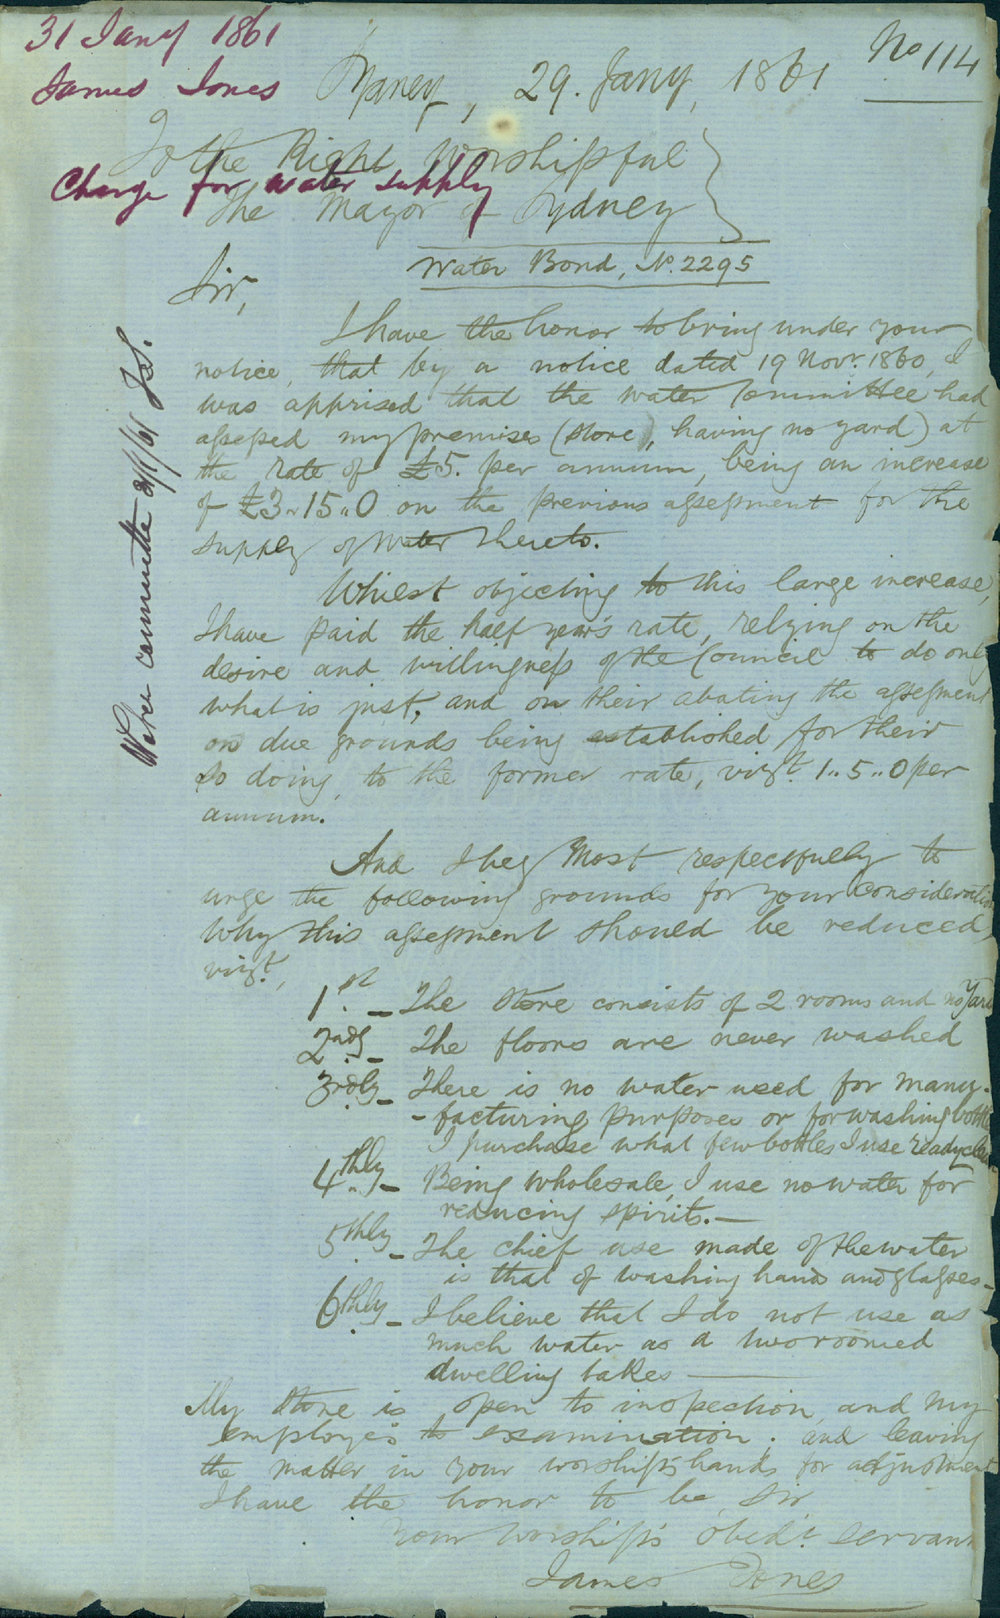 31 Jany 1861
James Jones
Charge for water supply
No 114
Sydney, 29. Jany, 1861
To the Right Worshipful
The Mayor of Sydney
Water Bond, No. 2295
Sir,
I have the honor to bring under your
notice, that by a notice dated 19 Novr. 1860, I
was apprised that the water Committee had
assessed my premises (store, having no yard) at
the rate of £5. per annum, being an increase
of £3,,15,,0 on the previous assessment for the
supply of water thereto.
Whilst objecting to this large increase,
I have paid the half year's rate, relying on the
desire and willingness of the Council to do only
what is just, and on their abating the assessment
on due grounds being established for their
so doing, to the former rate, vizt. 1..5..0 per
annum.
And I beg most respectfully to
urge the following grounds for your consideration
why this assessment should be reduced
vizt,
1st. - The store consists of 2 rooms and no yard
2ndly - The floors are never washed
3rdly - There is no water used for manu-
-facturing purposes or for washing bottles
I purchase what few bottles I use ready clean
4thly - Being wholesale, I use no water for
reducing spirits. -
5thly - The chief use made of the water
is that of washing hands and glasses -
6thly - I believe that I do not use as
much water as a two roomed
dwelling takes -
My store is open to inspection, and my
employés to examination; and leaving
the matter in your worship's hands for adjustment
I have the honor to be, Sir
Your worship's obedt. servant
James Jones
Water committee 31/1/61